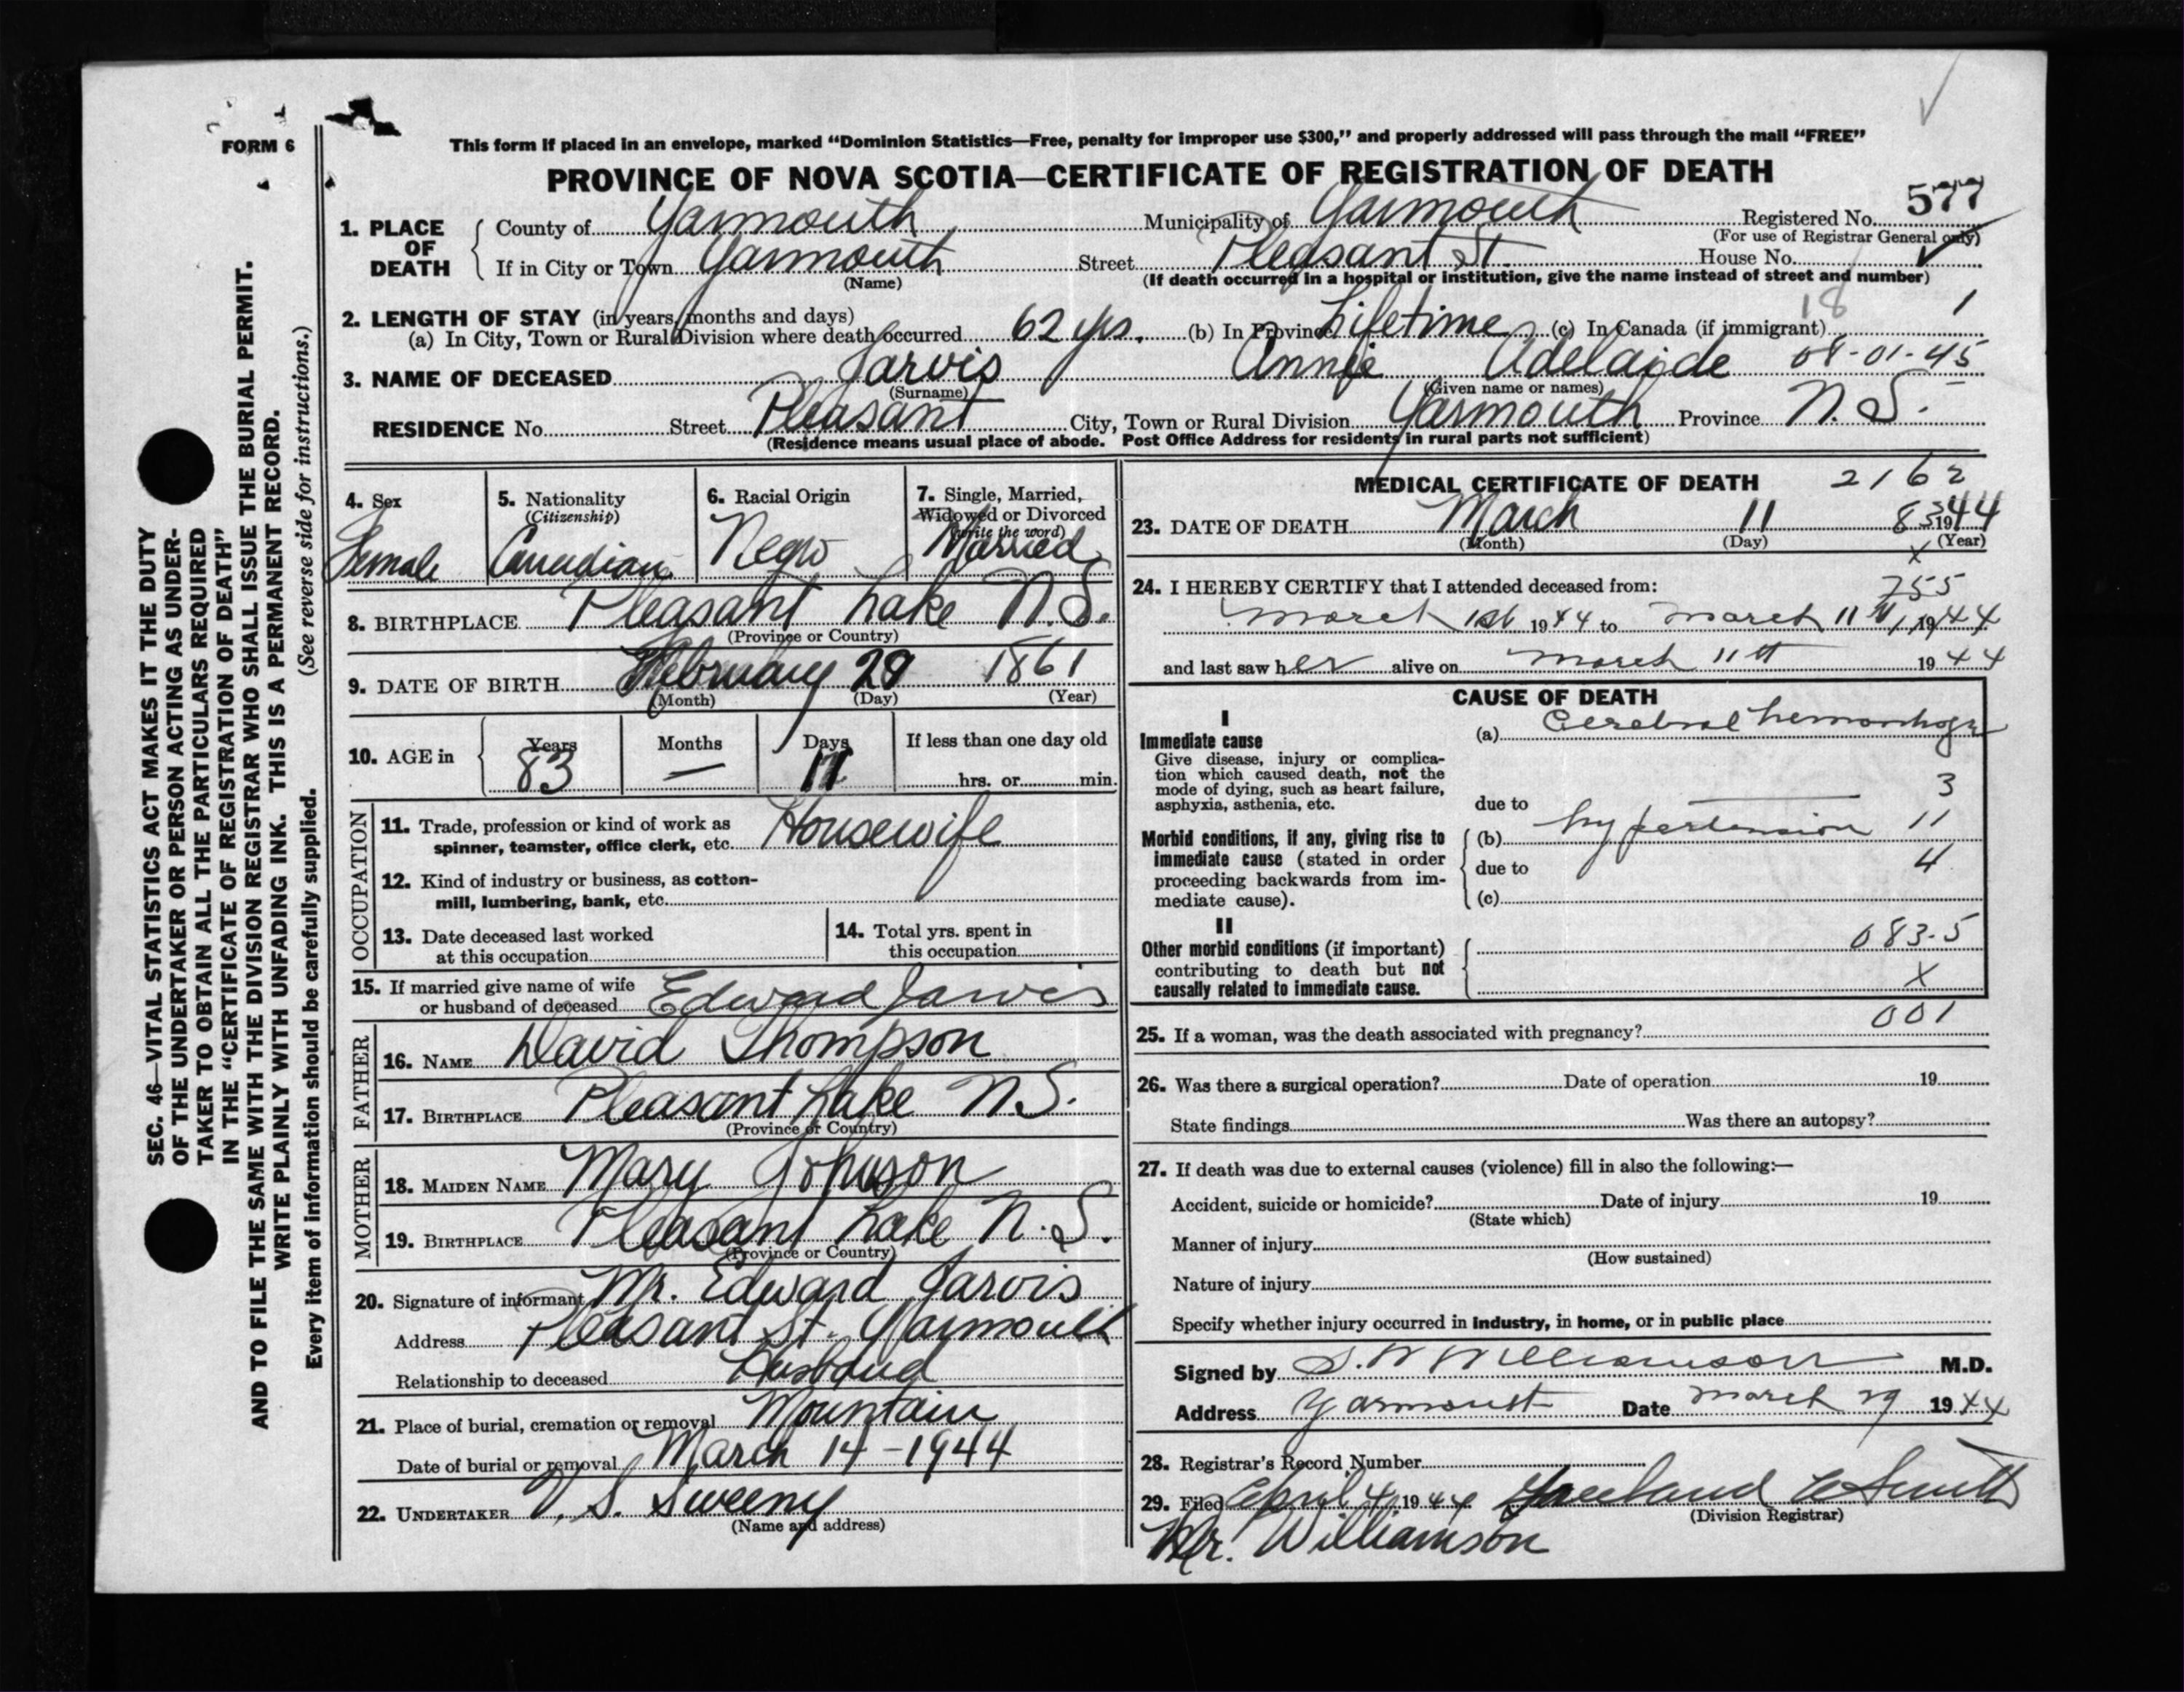 FORM 6
This form if placed in an envelope, marked "Dominion Statistics—Free, penalty for improper use $300," and properly addressed will pass through the mail "FREE"
PROVINCE OF NOVA SCOTIA—CERTIFICATE OF REGISTRATION OF DEATH
577
1. PLACE OF DEATH County of Yarmouth Municipality of Yarmouth Registered No.
(For use of Registrar General only)
If in City or Town Yarmouth Street Pleasant St. House No.
(Name) (If death occurred in a hospital or institution, give the name instead of street and number)
2. LENGTH OF STAY (in years, months and days) 18 1
(a) In City, Town or Rural Division where death occurred 62 yrs. (b) In Province Lifetime (c) In Canada (if immigrant)
3. NAME OF DECEASED Jarvis Annie Adelaide 08-01-45
(Surname) (Given name or names)
RESIDENCE No. Street Pleasant City, Town or Rural Division Yarmouth Province N.S.
(Residence means usual place of abode. Post Office Address for residents in rural parts not sufficient)
4. Sex
Female
5. Nationality
(Citizenship)
Canadian
6. Racial Origin
Negro
7. Single, Married,
Widowed or Divorced
(write the word)
Married
8. BIRTHPLACE Pleasant Lake N.S.
(Province or Country)
9. DATE OF BIRTH February 28 1861
(Month) (Day) (Year)
10. AGE in Years Months Days If less than one day old
83 — 11 hrs. or min.
OCCUPATION
11. Trade, profession or kind of work as
spinner, teamster, office clerk, etc. Housewife
12. Kind of industry or business, as cotton-
mill, lumbering, bank, etc.
13. Date deceased last worked
at this occupation
14. Total yrs. spent in
this occupation
15. If married give name of wife
or husband of deceased Edward Jarvis
FATHER
16. NAME David Thompson
17. BIRTHPLACE Pleasant Lake N.S.
(Province or Country)
MOTHER
18. MAIDEN NAME Mary Johnson
19. BIRTHPLACE Pleasant Lake N.S.
(Province or Country)
20. Signature of informant Mr. Edward Jarvis
Address Pleasant St. Yarmouth
Relationship to deceased Husband
21. Place of burial, cremation or removal Mountain
Date of burial or removal March 14-1944
22. UNDERTAKER V. S. Sweeny
(Name and address)
MEDICAL CERTIFICATE OF DEATH 2162
23. DATE OF DEATH March 11 1944
(Month) (Day) (Year)
X
24. I HEREBY CERTIFY that I attended deceased from: 755
March 1st 1944 to March 11th, 1944
and last saw her alive on March 11th 1944
CAUSE OF DEATH
I
Immediate cause
Give disease, injury or complica-
tion which caused death, not the
mode of dying, such as heart failure,
asphyxia, asthenia, etc.
(a) Cerebral hemorrhage
3
due to
Morbid conditions, if any, giving rise to
immediate cause (stated in order
proceeding backwards from im-
mediate cause).
(b) hypertension 11
due to 4
(c)
II
Other morbid conditions (if important)
contributing to death but not
causally related to immediate cause.
083-5
X
001
25. If a woman, was the death associated with pregnancy?
26. Was there a surgical operation? Date of operation 19
State findings Was there an autopsy?
27. If death was due to external causes (violence) fill in also the following:—
Accident, suicide or homicide? Date of injury 19
(State which)
Manner of injury
(How sustained)
Nature of injury
Specify whether injury occurred in industry, in home, or in public place
Signed by S. W Williamson M.D.
Address Yarmouth Date March 29 1944
28. Registrar's Record Number
29. Filed April 4, 1944 Smith
(Division Registrar)
Mr. Williamson
SEC. 46—VITAL STATISTICS ACT MAKES IT THE DUTY
OF THE UNDERTAKER OR PERSON ACTING AS UNDER-
TAKER TO OBTAIN ALL THE PARTICULARS REQUIRED
IN THE "CERTIFICATE OF REGISTRATION OF DEATH"
AND TO FILE THE SAME WITH THE DIVISION REGISTRAR WHO SHALL ISSUE THE BURIAL PERMIT.
WRITE PLAINLY WITH UNFADING INK. THIS IS A PERMANENT RECORD.
Every item of information should be carefully supplied. (See reverse side for instructions.)